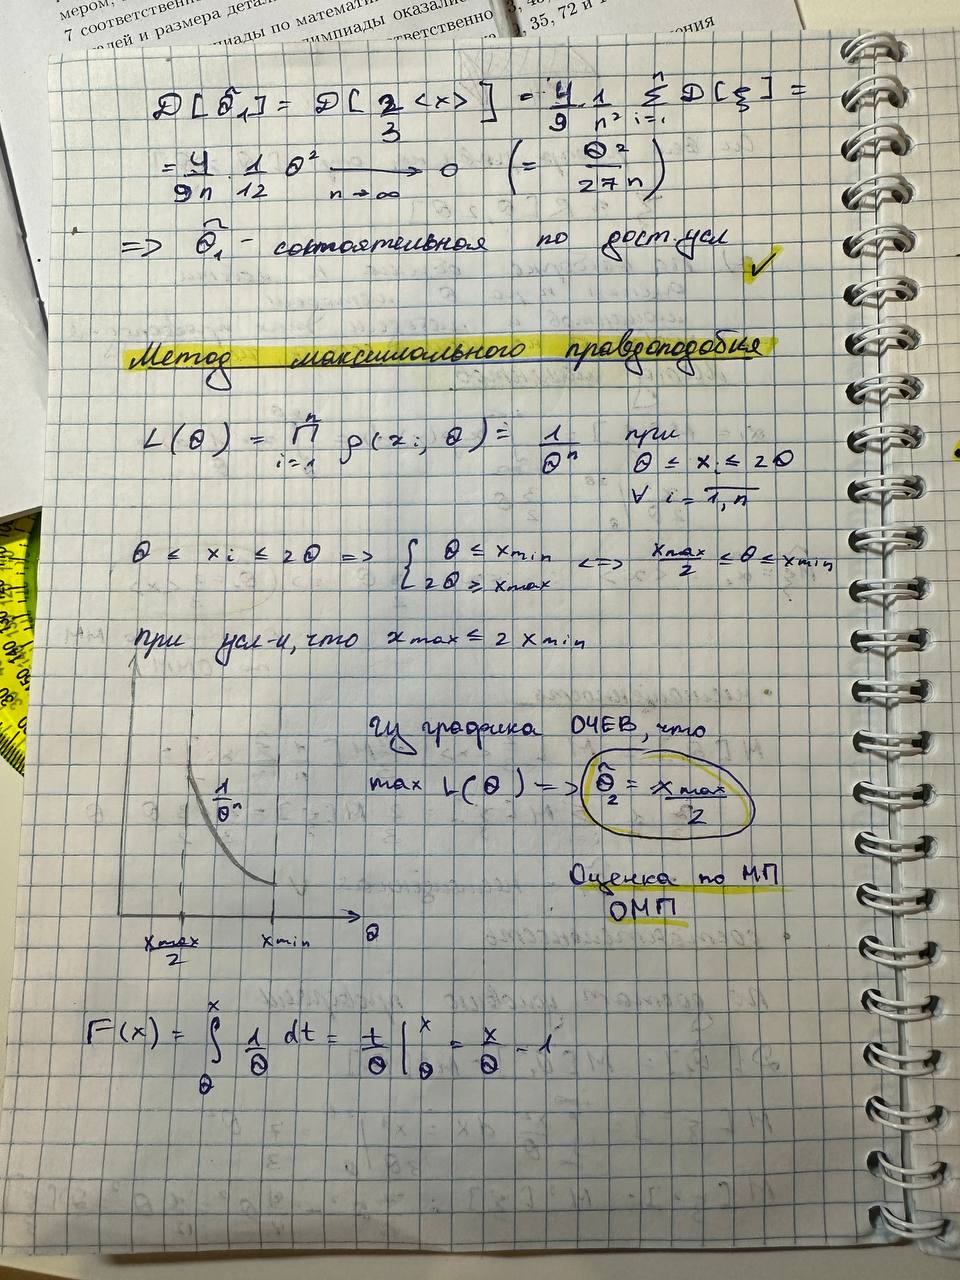 мером,
7 соответственн
лей и размера детал
пиады по математи
лимпиады оказали
тветственно
35, 72 и 1
ения
D[θ̃₁] = D[2/3 <x>] = 4/9 1/n² Σ_{i=1}^{n} D[ξ] =
= 4/9n 1/12 θ² ⟶_{n→∞} 0 (= θ²/27n)
=> θ̃₁ - состоятельная по дост. усл ✓
Метод максимального правдоподобия
L(θ) = Π_{i=1}^{n} ρ(xᵢ, θ) = 1/θⁿ при
θ ≤ xᵢ ≤ 2θ
∀ i = 1,n
θ ≤ xᵢ ≤ 2θ => { θ ≤ xmin <=> xmax/2 ≤ θ ≤ xmin
2θ ≥ xmax
при усл-и, что xmax ≤ 2 xmin
Из графика ОЧЕВ, что
max L(θ) => θ̃₂ = xmax/2
1/θⁿ
Оценка по МП
ОМП
xmax/2 xmin θ
F(x) = ∫_θ^x 1/θ dt = t/θ |_θ^x = x/θ - 1